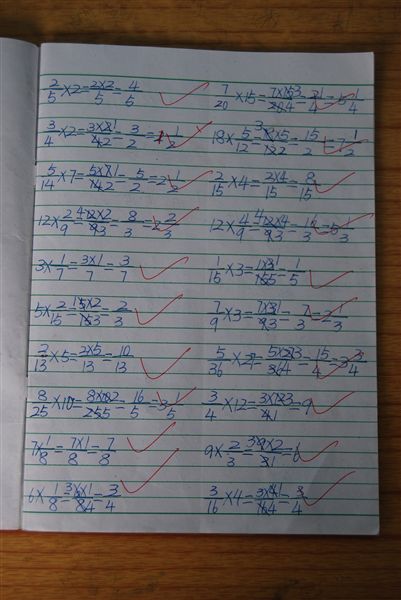 2/5×2=2×2/5=4/5 7/20×15=7×15/20=21/4=5 1/4
3/4×2=3×2/4=3/2=1 1/2 18×5/12=18×5/12=15/2=7 1/2
5/14×7=5×7/14=5/2=2 1/2 2/15×4=2×4/15=8/15
12×2/9=12×2/9=8/3=2 2/3 12×4/9=12×4/9=16/3=5 1/3
3×1/7=3×1/7=3/7 1/15×3=1×3/15=1/5
5×2/15=5×2/15=2/3 7/9×3=7×3/9=7/3=2 1/3
2/13×5=2×5/13=10/13 5/36×27=5×27/36=15/4=3 3/4
8/25×10=8×10/25=16/5=3 1/5 3/4×12=3×12/4=9
7×1/8=7×1/8=7/8 9×2/3=9×2/3=6
6×1/8=6×1/8=3/4 3/16×4=3×4/16=3/4